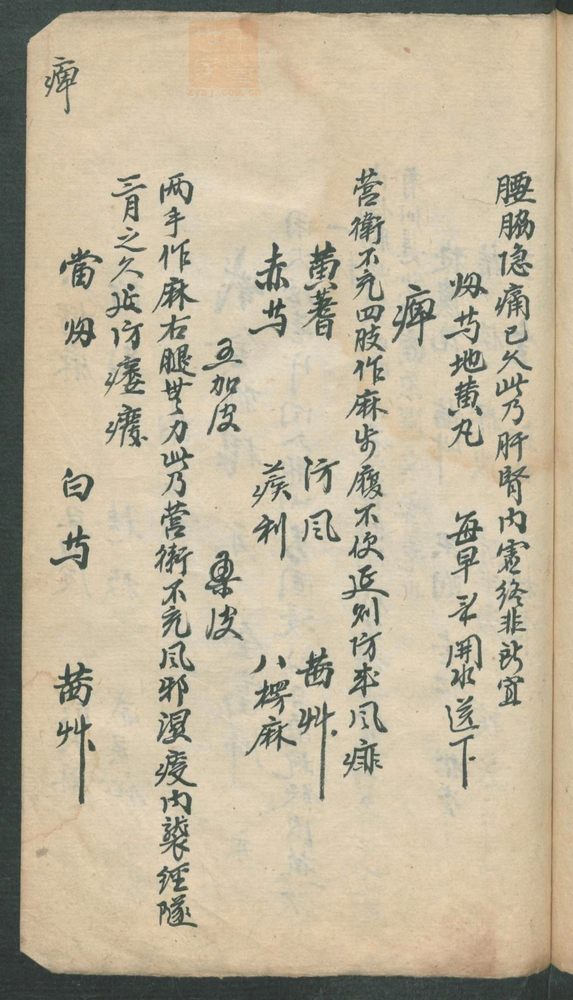 腰脇隐痛已久此乃肝腎内虚终非所宜
归芍地黄丸 每早 开水送下
痺
营衛不充四肢作麻步履不便延则防成风痱
黄蓍 防风 茜艸
赤芍 蒺利 八楞麻
五加皮 桑皮
两手作麻右腿無力此乃营衛不充风邪湿痰内襲经隧
三月之久延防痿癈
當归 白芍 茜艸
痺